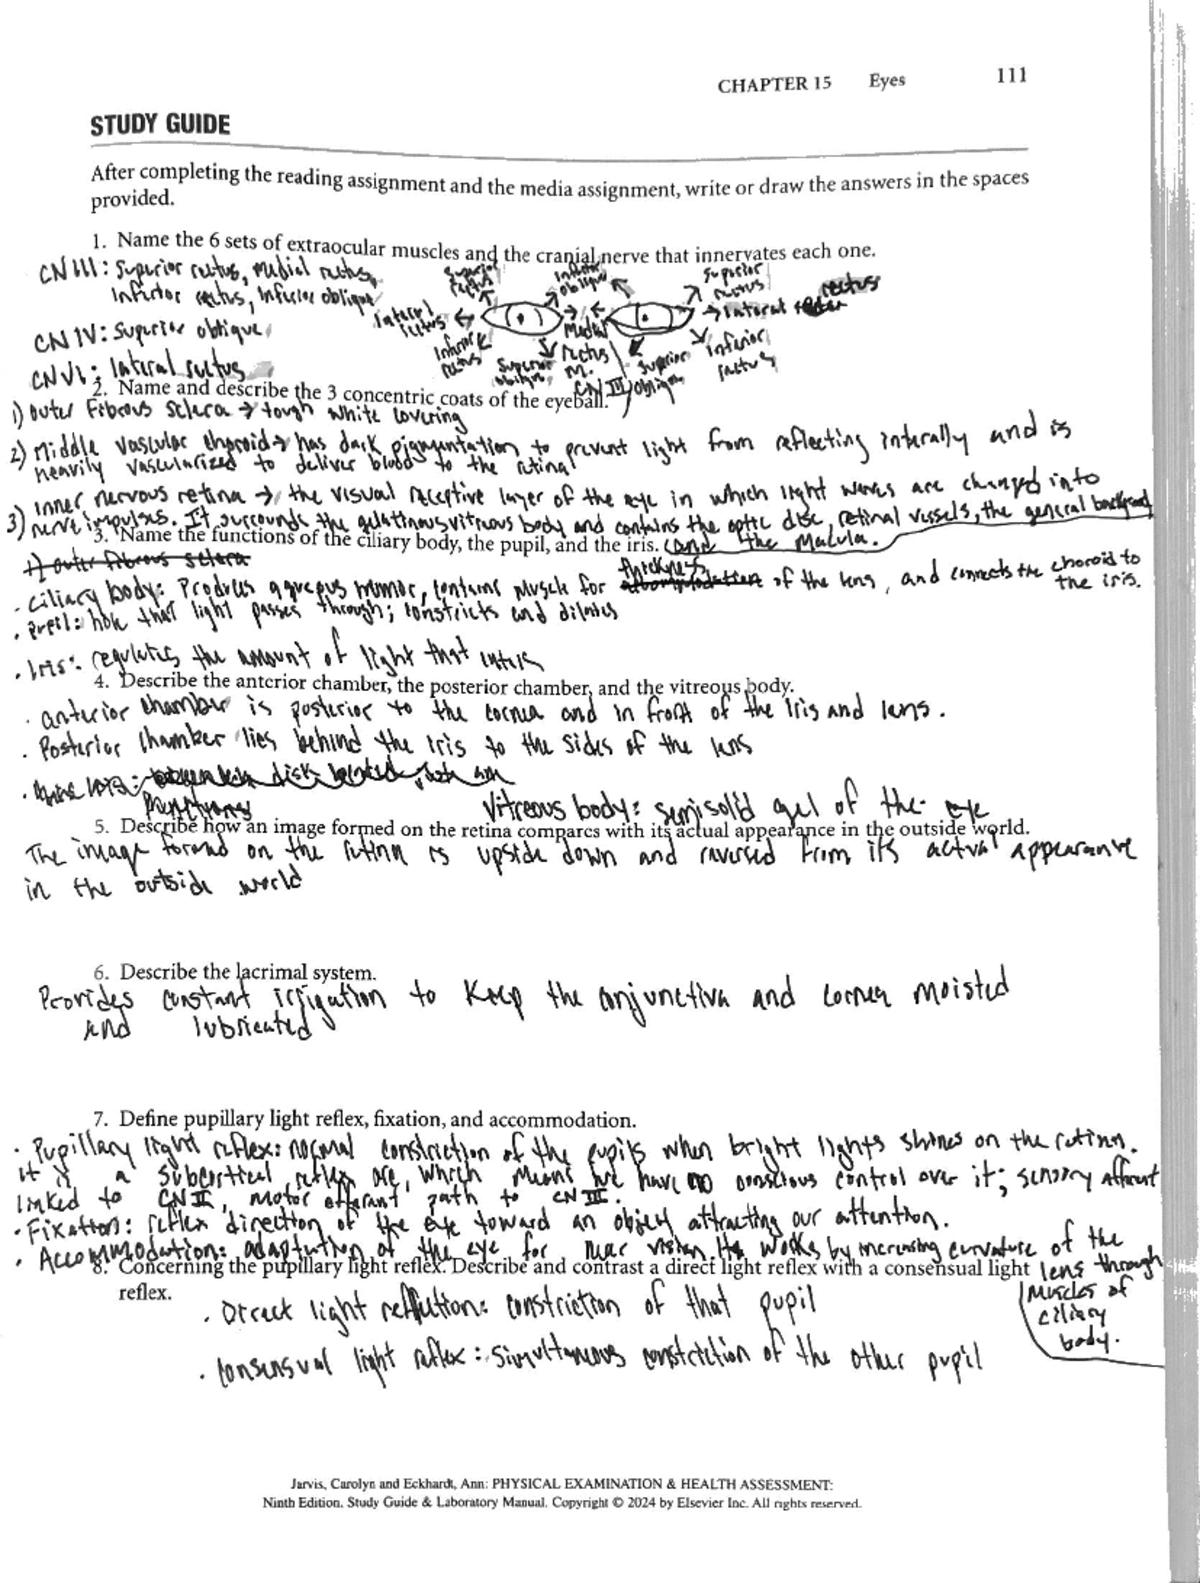 CHAPTER 15 Eyes 111
STUDY GUIDE
After completing the reading assignment and the media assignment, write or draw the answers in the spaces
provided.
1. Name the 6 sets of extraocular muscles and the cranial nerve that innervates each one.
CN III: Superior rectus, medial rectus,
Inferior rectus, Inferior oblique
CN IV: Superior oblique
CN VI: lateral rectus
Superior rectus
Inferior oblique
Superior rectus
lateral rectus
lateral rectus
Inferior rectus
Superior oblique
Medial rectus m.
CN III
Superior oblique
Inferior rectus
2. Name and describe the 3 concentric coats of the eyeball.
1) outer Fibrous Sclera → tough white covering
2) Middle vascular choroid → has dark pigmentation to prevent light from reflecting interally and is
heavily vascularized to deliver blood to the retina
3) inner nervous retina → the visual receptive layer of the eye in which light waves are changed into
nerve impulses. It surrounds the gelatinous vitreous body and contains the optic disc, retinal vessels, the general background
and the Macula.
3. Name the functions of the ciliary body, the pupil, and the iris.
1) outer fibrous sclera
· Ciliary body: Produces aqueous humor, contains muscle for thickness of the lens, and connects the choroid to
the iris.
· Pupil: hole that light passes through; constricts and dilates
· Iris: regulates the amount of light that enters
4. Describe the anterior chamber, the posterior chamber, and the vitreous body.
· anterior chamber is posterior to the cornea and in front of the iris and lens.
· Posterior chamber lies behind the iris to the sides of the lens
Vitreous body: semisolid gel of the eye
5. Describe how an image formed on the retina compares with its actual appearance in the outside world.
The image formed on the retina is upside down and reversed from its actual appearance
in the outside world
6. Describe the lacrimal system.
Provides constant irrigation to keep the conjunctiva and cornea moisted
and lubricated
7. Define pupillary light reflex, fixation, and accommodation.
· Pupillary light reflex: normal constriction of the pupils when bright lights shines on the retina.
it is a subcortical reflex arc, which means we have no conscious control over it; sensory afferent
linked to CN II, motor efferant path to CN III.
· Fixation: reflex direction of the eye toward an object attracting our attention.
· Accommodation: adaptation of the eye for near vision. It works by increasing curvature of the
lens through
muscles of
ciliary
body.
8. Concerning the pupillary light reflex: Describe and contrast a direct light reflex with a consensual light
reflex.
· Direct light reflection: constriction of that pupil
· Consensual light reflex: simultaneous constriction of the other pupil
Jarvis, Carolyn and Eckhardt, Ann: PHYSICAL EXAMINATION & HEALTH ASSESSMENT:
Ninth Edition. Study Guide & Laboratory Manual. Copyright © 2024 by Elsevier Inc. All rights reserved.